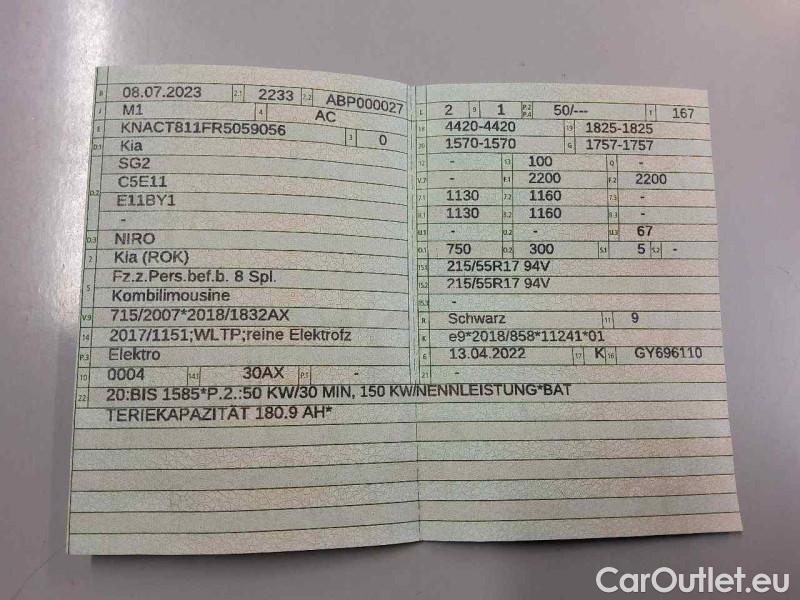 B 08.07.2023 2.1 2233 2.2 ABP000027
J M1 4 AC
E KNACT811FR5059056 3 0
D.1 Kia
D.2 SG2
C5E11
E11BY1
-
D.3 NIRO
2 Kia (ROK)
5 Fz.z.Pers.bef.b. 8 Spl.
Kombilimousine
V.9 715/2007*2018/1832AX
14 2017/1151;WLTP;reine Elektrofz
P.3 Elektro
10 0004 14.1 30AX P.1 -
22 20:BIS 1585*P.2.:50 KW/30 MIN, 150 KW/NENNLEISTUNG*BAT
TERIEKAPAZITÄT 180.9 AH*
L 2 9 1 P.2 P.4 50/--- T 167
18 4420-4420 19 1825-1825
20 1570-1570 G 1757-1757
12 - 13 100 Q -
V.7 - F.1 2200 F.2 2200
7.1 1130 7.2 1160 7.3 -
8.1 1130 8.2 1160 8.3 -
U.1 - U.2 - U.3 67
O.1 750 O.2 300 S.1 5 S.2 -
15.1 215/55R17 94V
15.2 215/55R17 94V
15.3 -
R Schwarz 11 9
K e9*2018/858*11241*01
6 13.04.2022 17 K 16 GY696110
21 -
CarOutlet.eu